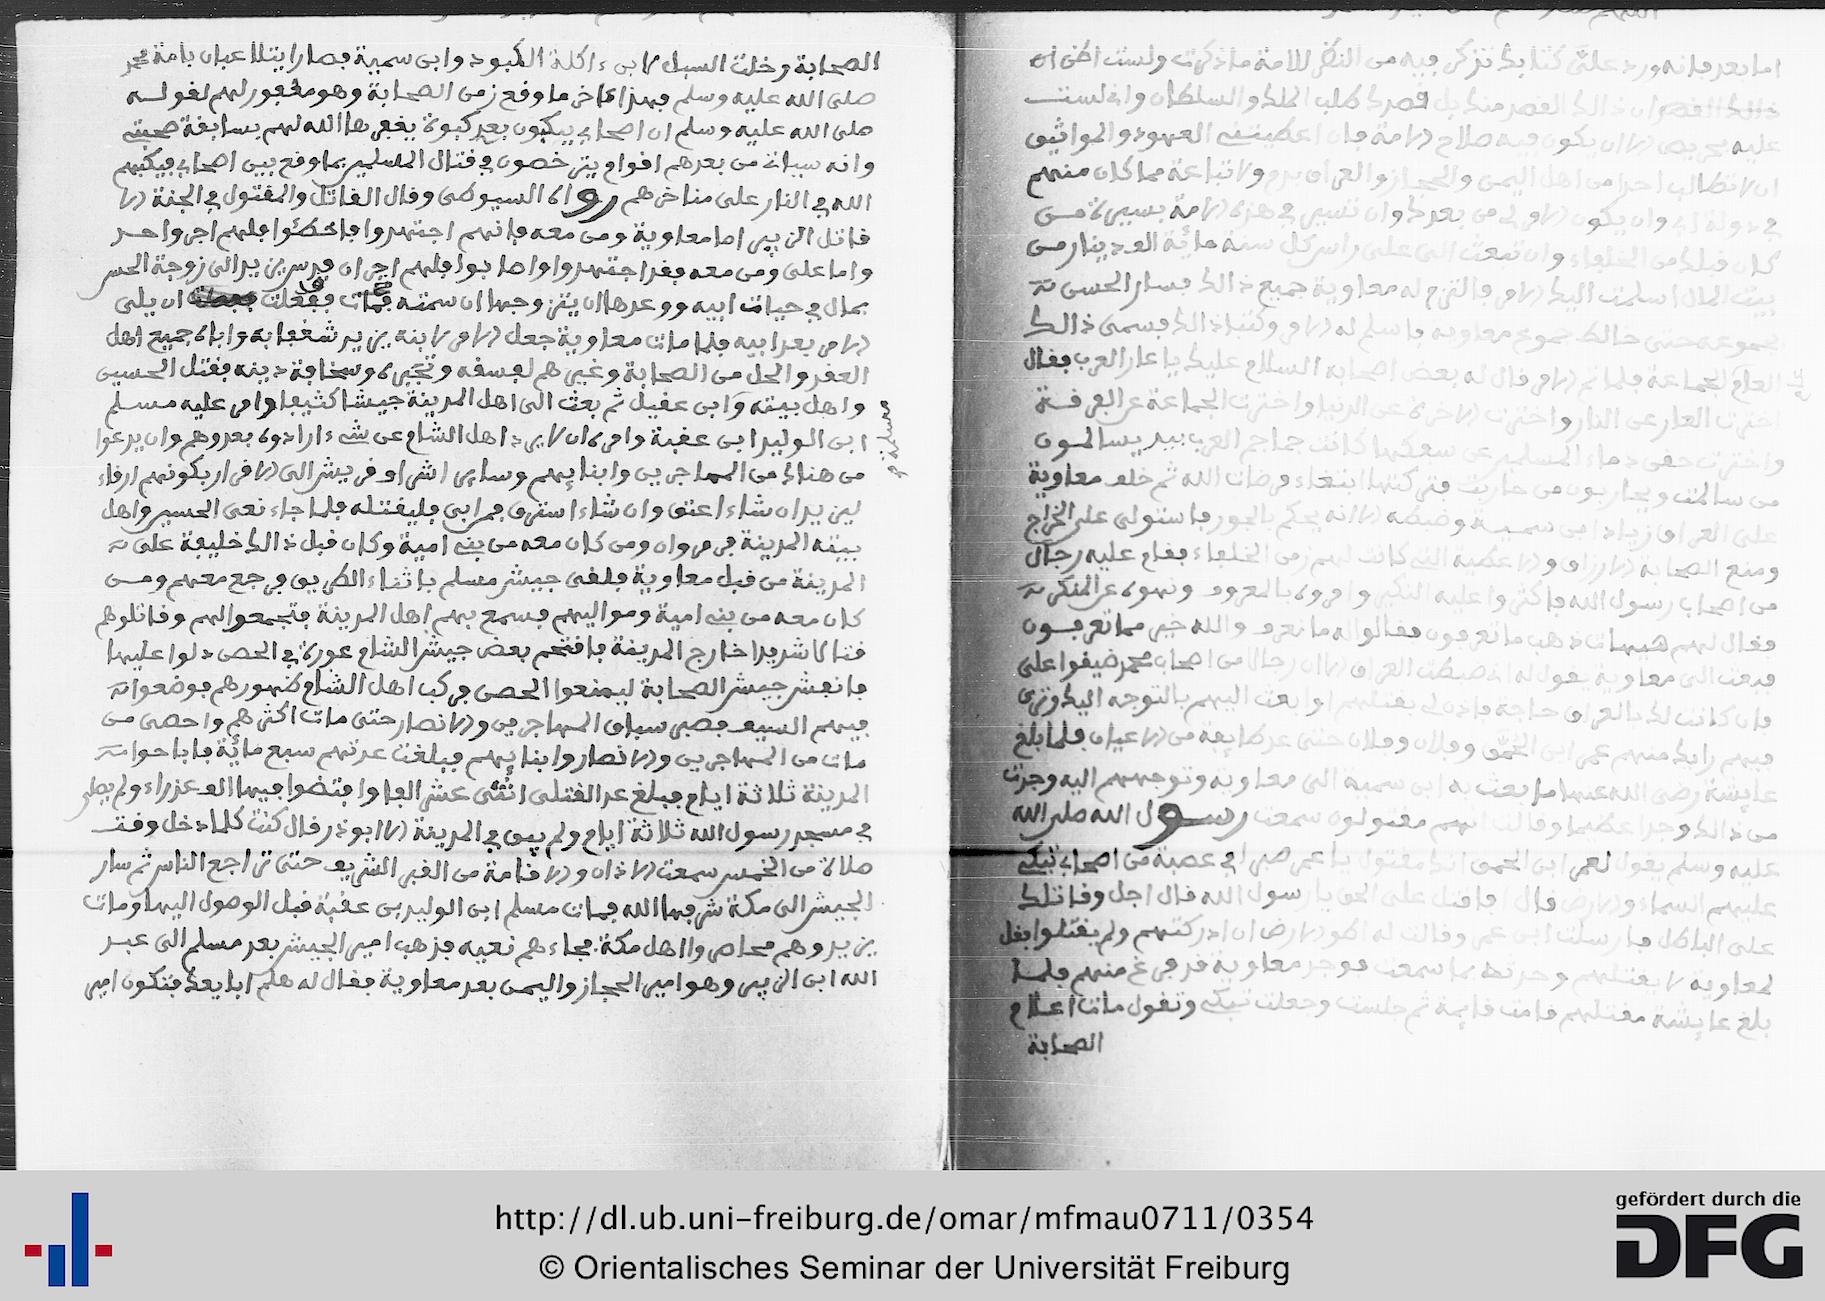 اما بعد فانه ورد علي كتابك تذكر فيه من النظر للامة ما ذكرت ولست اظن ان
ذالك القصد ان ذالك القصد منك بل قصدك طلب الملك والسلطان واذ لست
عليه بحريص الا ان يكون فيه صلاح الامة فان اعطيتني العهود والمواثيق
ان لا تطالب احدا من اهل اليمن والحجاز والعراق بدم ولا تباعة مما كان منهم
في دولة ابي وان يكون الامر لي من بعدك وان تسير في هذه الامة بسيرة من
كان قبلك من الخلفاء وان تبعث الي على راس كل سنة مائة الف دينار من
بيت المال اسلمت اليك الامر فالتزم له معاوية جميع ذالك فسار الحسن
بجموعه حتى خالط جموع معاوية فاسلم له الامر وكتبا ذالك فسمى ذالك
العام الجماعة فلما تم الامر قال له بعض اصحابه السلام عليك يا عار العرب فقال
اخترت العار عن النار واخترت الاخرة عن الدنيا واخترت الجماعة عن الفرقة
واخترت حقن دماء المسلمين عن سفكها كانت جماجم العرب بيدي يسالمون
من سالمت ويحاربون من حاربت فتركتها ابتغاء مرضات الله ثم خلف معاوية
على العراق زياد ابن سمية وضبطه الا انه يحكم بالجور فاستولى على الخراج
ومنع الصحابة الارزاق والاعطية التي كانت لهم زمن الخلفاء فقام عليه رجال
من اصحاب رسول الله فاكثروا عليه النكير وامروه بالمعروف ونهوه عن المنكر
فقال لهم هيهات ذهب ما تعرفون فقالوا له ما نعرف والله خير مما تعرفون
فبعث الى معاوية يقول له اني ضبطت العراق الا ان رجالا من اصحاب محمد ضيقوا علي
فان كانت لك بالعراق حاجة فاذن لي بقتلهم او ابعث اليهم بالتوجه اليك وترى
فيهم رايك منهم عمر ابن الحمق وفلان وفلان حتى عد طايفة من الاعيان فلما بلغ
عايشة رضي الله عنها ما بعث به ابن سمية الى معاوية وتوجههم اليه وجدت
من ذالك وجدا عظيما وقالت انهم مقتولون سمعت رسول الله صلى الله
عليه وسلم يقول لعمر ابن الحمق انك مقتول يا عمر صبرا في عصبة من اصحابي تبكي
عليهم السماء والارض قال افاقتل على الحق يا رسول الله قال اجل وقاتلك
على الباطل فارسلت ابن عمر وقالت له اطو الارض ان ادركتهم ولم يقتلوا بقل
لمعاوية لا يقتلهم وحدثه بما سمعت فوجد معاوية قد فرغ منهم فلما
بلغ عايشة مقتلهم قامت قايمة ثم جلست وجعلت تبكي وتقول مات اعلام
الصحابة
الصحابة وخلت السبل لابن ءاكلة الكبود وابن سمية فصارا يتلاعبان بامة محمد
صلى الله عليه وسلم فهذا ءاخر ما وقع زمن الصحابة وهو مغفور لهم لقوله
صلى الله عليه وسلم ان اصحابي يكبون بعدي كبوة يغفرها الله لهم بسابقة صحبتي
وانه سيات من بعدهم اقوام يترخصون في قتال المسلمين بما وقع بين اصحابي فيكبهم
الله في النار على مناخرهم رواه السيوطي وقال القاتل والمقتول في الجنة الا
قاتل الزبير اما معاوية ومن معه فانهم اجتهدوا فاخطئوا فلهم اجر واحد
واما علي ومن معه فقد اجتهدوا واصابوا فلهم اجران فدس يزيد الى زوجة الحسن
بمال في حيات ابيه ووعدها ان يتزوجها ان سمته فمات ففعلت ان يلي
الامر بعد ابيه فلما مات معاوية جعل الامر لابنه يزيد شغبا به واباه جميع اهل
العقد والحل من الصحابة وغيرهم لفسقه وتجبره وسخافة دينه فقتل الحسين
واهل بيته وابن عقيل ثم بعث الى اهل المدينة جيشا كثيفا وامر عليه مسلم
ابن الوليد ابن عقبة وامره ان لا يرد اهل الشام عن شيء ارادوه بعدوهم وان يدعوا
من هنالك من المهاجرين وابنايهم وساير اشراف قريش الى الاقرار بكونهم ارقاء
ليزيد ان شاء اعتق وان شاء استرق فمن ابى فليقتله فلما جاء نعي الحسين واهل
بيته المدينة فر مروان ومن كان معه من بني امية وكان قبل ذالك خليفة على
المدينة من قبل معاوية فلقي جيش مسلم باثناء الطريق فرجع معهم ومن
كان معه من بني امية ومواليهم فسمع بهم اهل المدينة فتجمعوا لهم وقاتلوهم
قتالا شديدا خارج المدينة فاقتحم بعض جيش الشام عورة في الحصن دلوا عليها
فانعش جيش الصحابة ليمنعوا الحصن فركب اهل الشام ظهورهم فوضعوا
فيهم السيف فصبر سباق المهاجرين والانصار حتى مات اكثرهم واحصي من
مات من المهاجرين والانصار وابنايهم فبلغت عدتهم سبع مائة فاباحوا
المدينة ثلاثة ايام فبلغ عد القتلى اثني عشر الفا وافتضوا فيها الف عذراء ولم يصل
في مسجد رسول الله ثلاثة ايام ولم يبق في المدينة الا ابو ذر قال كنت كلما دخل وقت
صلاة من الخمس سمعت الاذان والاقامة من القبر الشريف حتى تراجع الناس ثم سار
الجيش الى مكة شرفها الله فمات مسلم ابن الوليد بن عقبة قبل الوصول اليها ومات
يزيد وهم محاصروا اهل مكة فجاءهم نعيه فذهب امير الجيش بعد مسلم الى عبد
الله ابن الزبير وهو امير الحجاز واليمن بعد معاوية فقال له هلم ابايعك فتكون امير
http://dl.ub.uni-freiburg.de/omar/mfmau0711/0354
© Orientalisches Seminar der Universität Freiburg
gefördert durch die
DFG